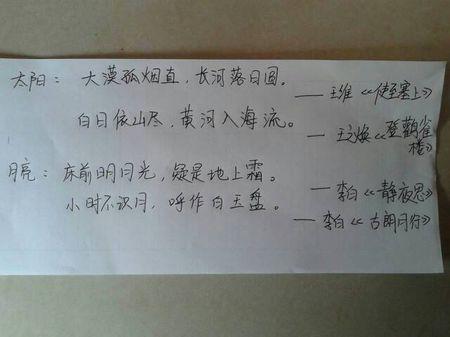 太阳：大漠孤烟直，长河落日圆。
——王维《使至塞上》
白日依山尽，黄河入海流。
——王之焕《登鹳雀楼》
月亮：床前明月光，疑是地上霜。
——李白《静夜思》
小时不识月，呼作白玉盘。
——李白《古朗月行》